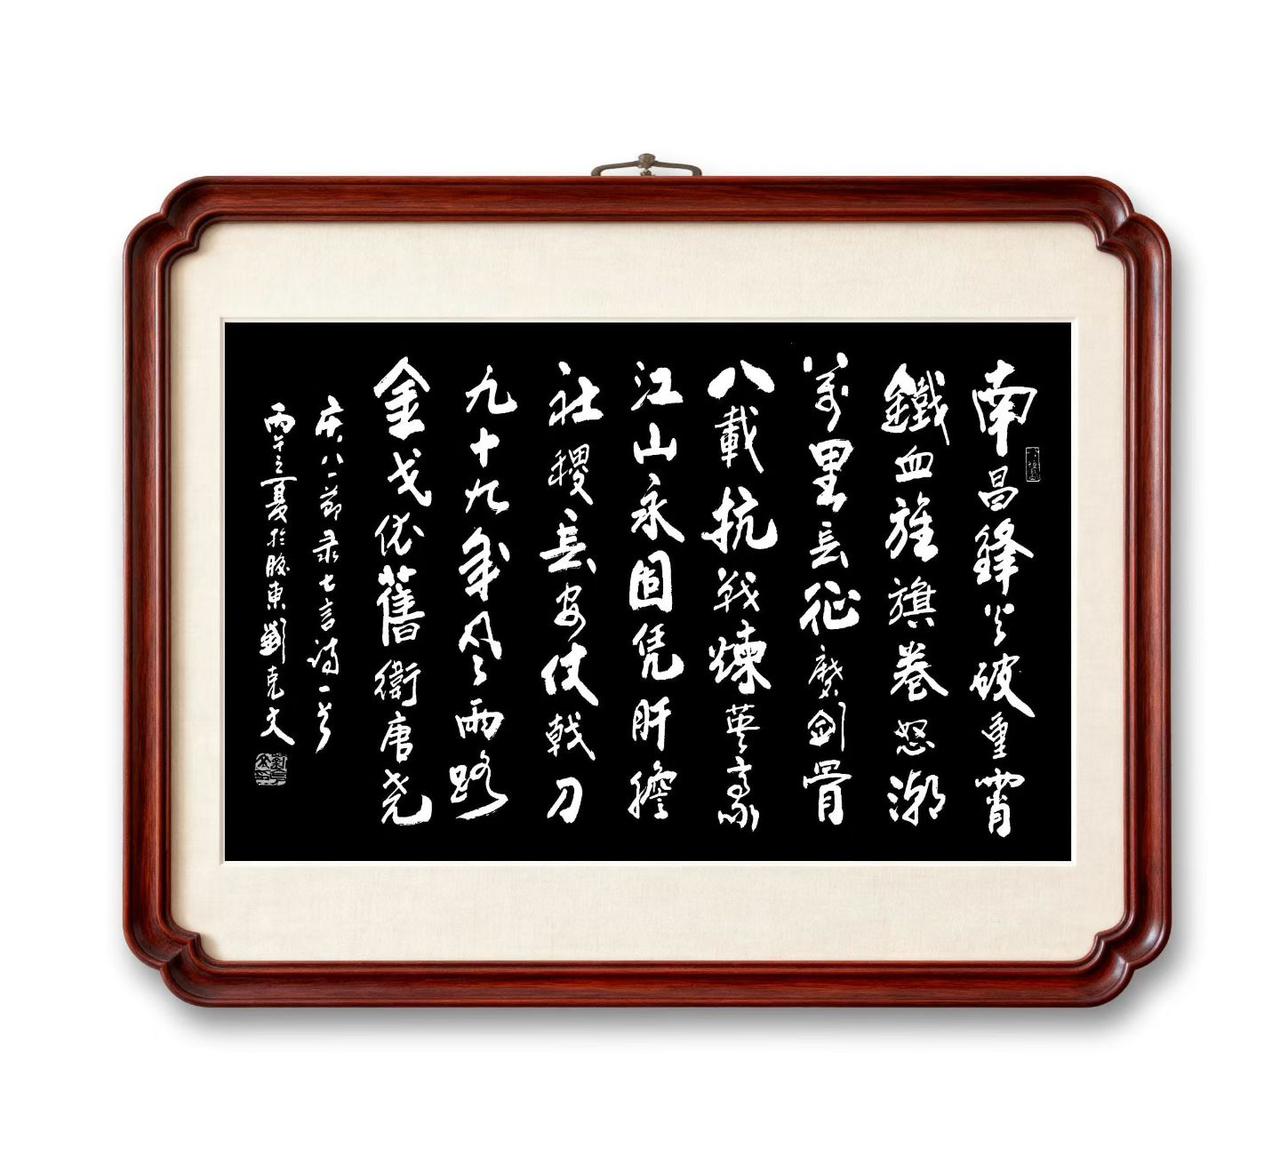 南昌鋒火破重霄
鐵血旌旗卷怒潮
萬里長征磨劍骨
八載抗戰煉英豪
江山永固凭肝膽
社稷長安仗戟刀
九十九年风雨路
金戈依舊衛唐堯
庆八一節录七言詩一首
丙午之夏於膠東劉克文